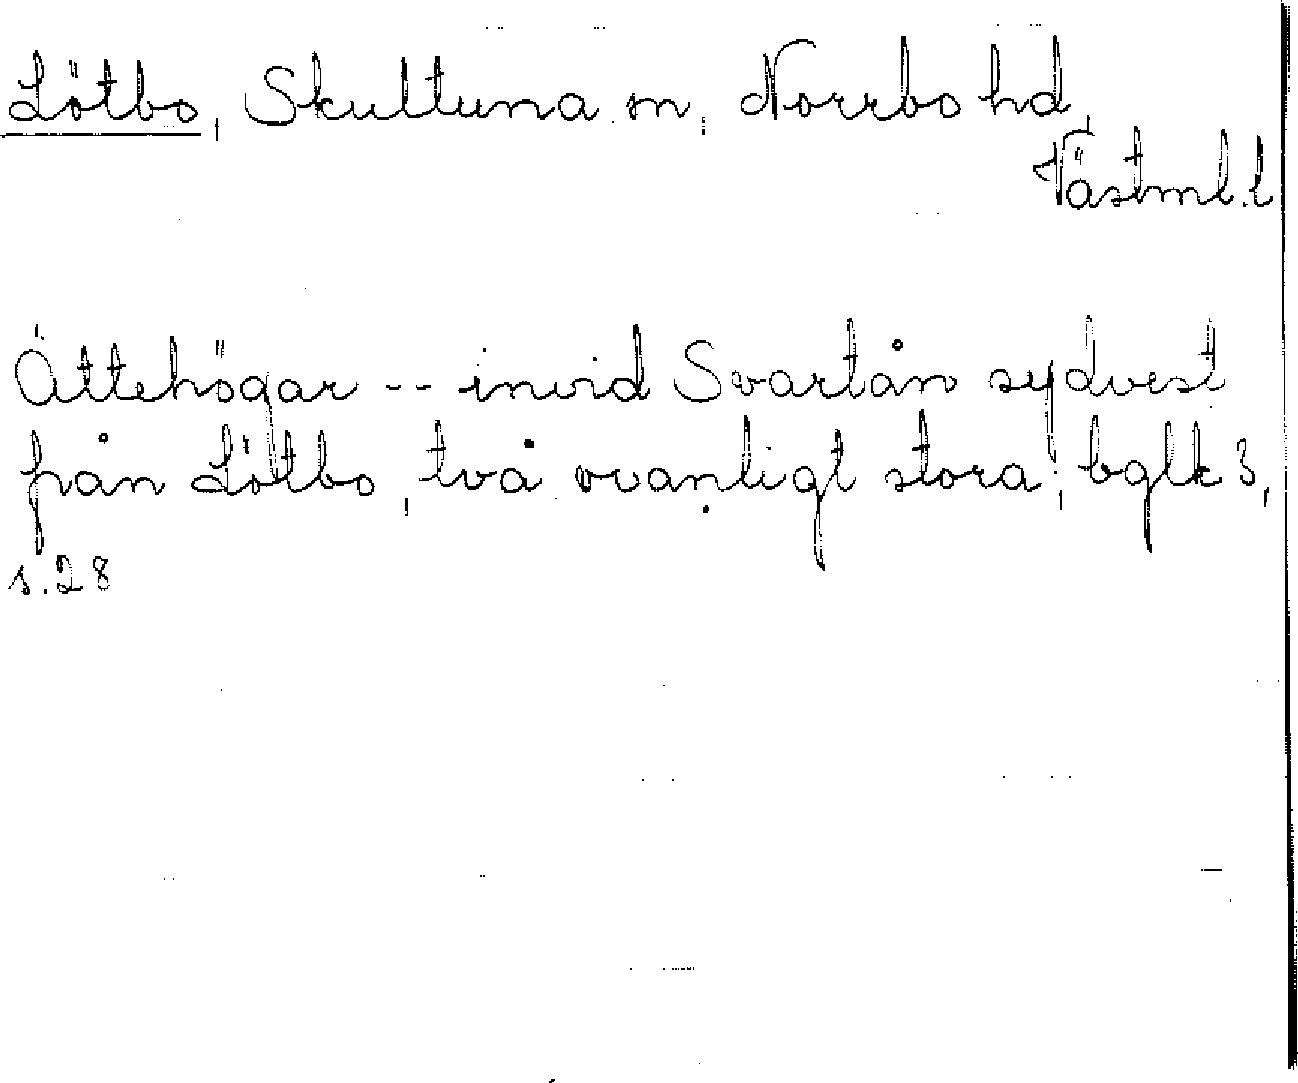 Lötbo, Skultuna sn, Norrbo hd,
Västml.l
Ättehögar -- invid Svartån sydvest
från Lötbo, två ovanligt stora; bglk 3,
s. 28